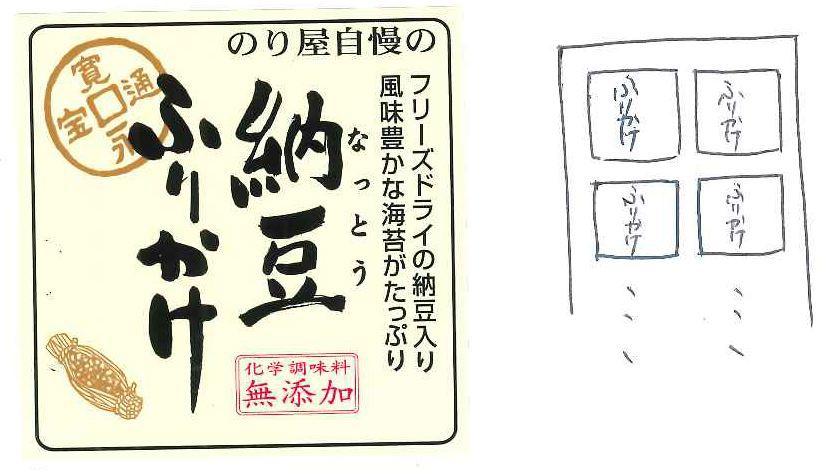 のり屋自慢の
フリーズドライの納豆入り
風味豊かな海苔がたっぷり
納豆
なっとう
ふりかけ
寛永通宝
化学調味料
無添加
ふりかけ
ふりかけ
ふりかけ
ふりかけ